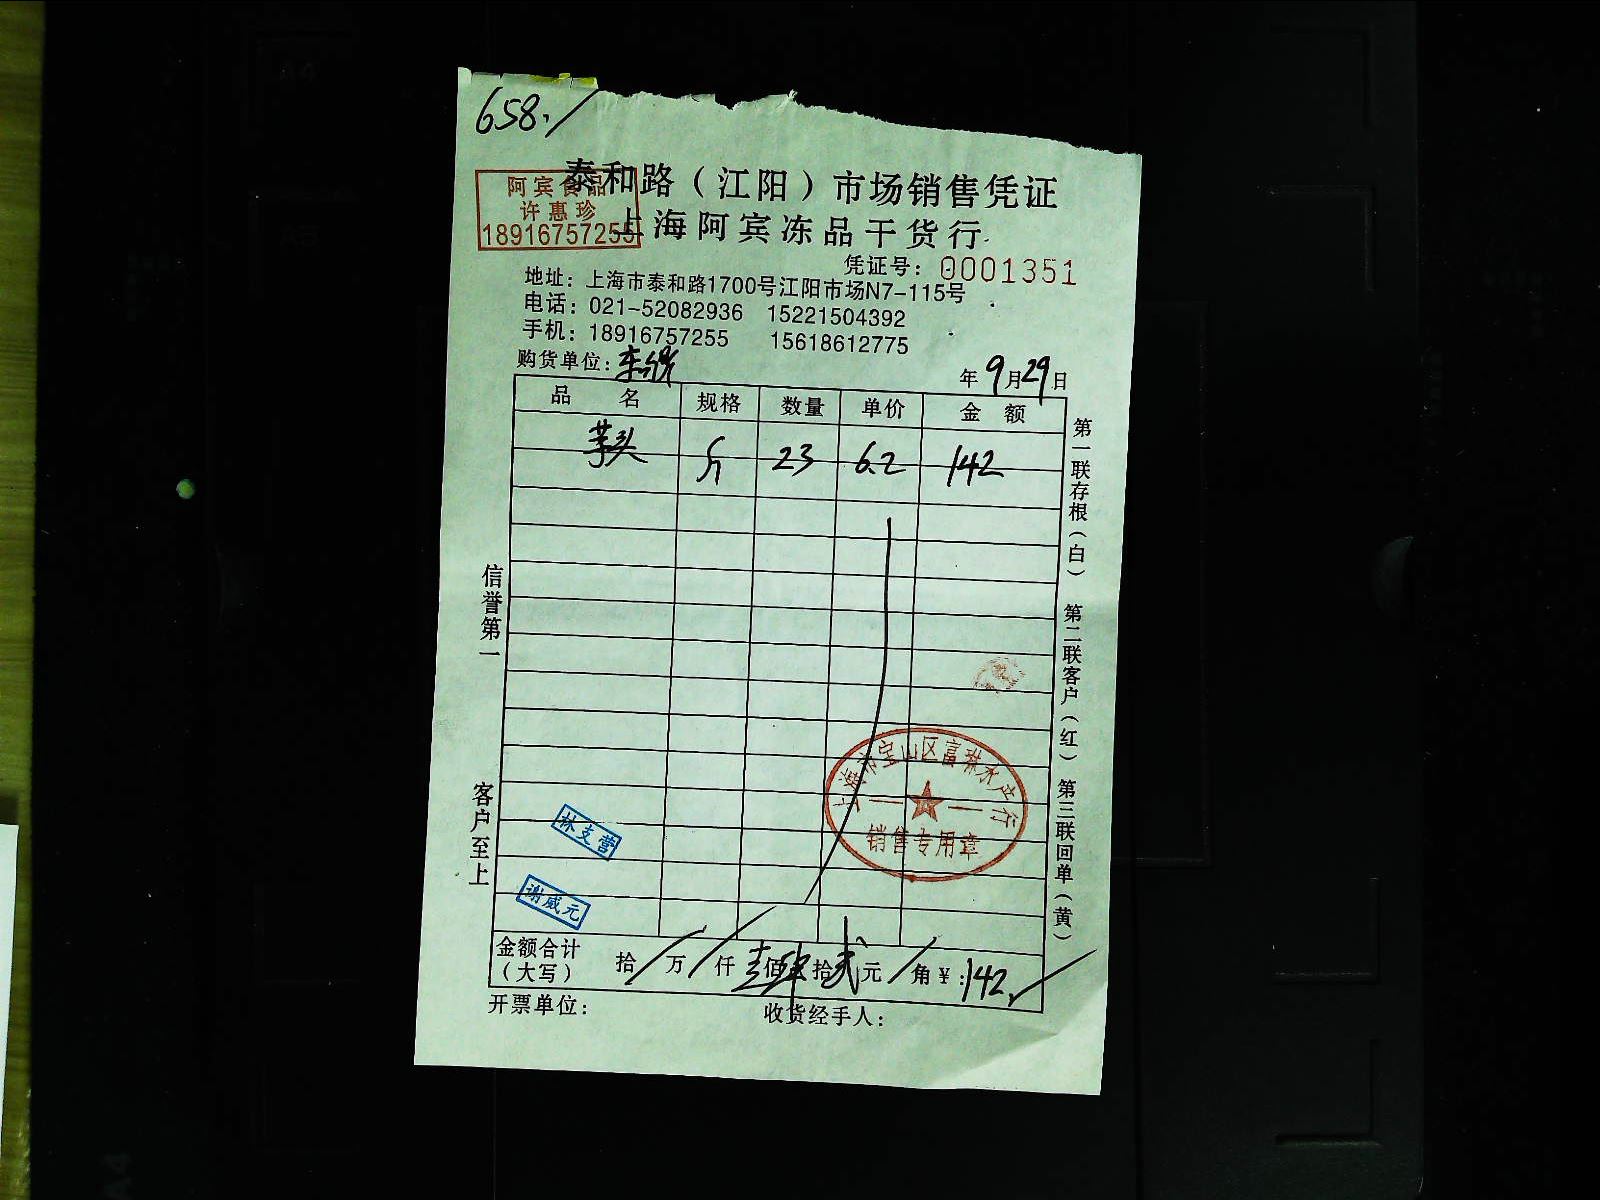 658.
泰和路（江阳）市场销售凭证
阿宾食品
许惠珍
18916757255
上海阿宾冻品干货行
凭证号：0001351
地址：上海市泰和路1700号江阳市场N7-115号
电话：021-52082936 15221504392
手机：18916757255 15618612775
购货单位：
年9月29日
品名 规格 数量 单价 金额
芋头 斤 23 6.2 142
第一联存根（白） 第二联客户（红） 第三联回单（黄）
信誉第一
客户至上
上海市宝山区富琳水产行
销售专用章
林支营
谢威元
金额合计（大写） 拾/万/仟壹佰肆拾贰元/角¥:142.
开票单位： 收货经手人：